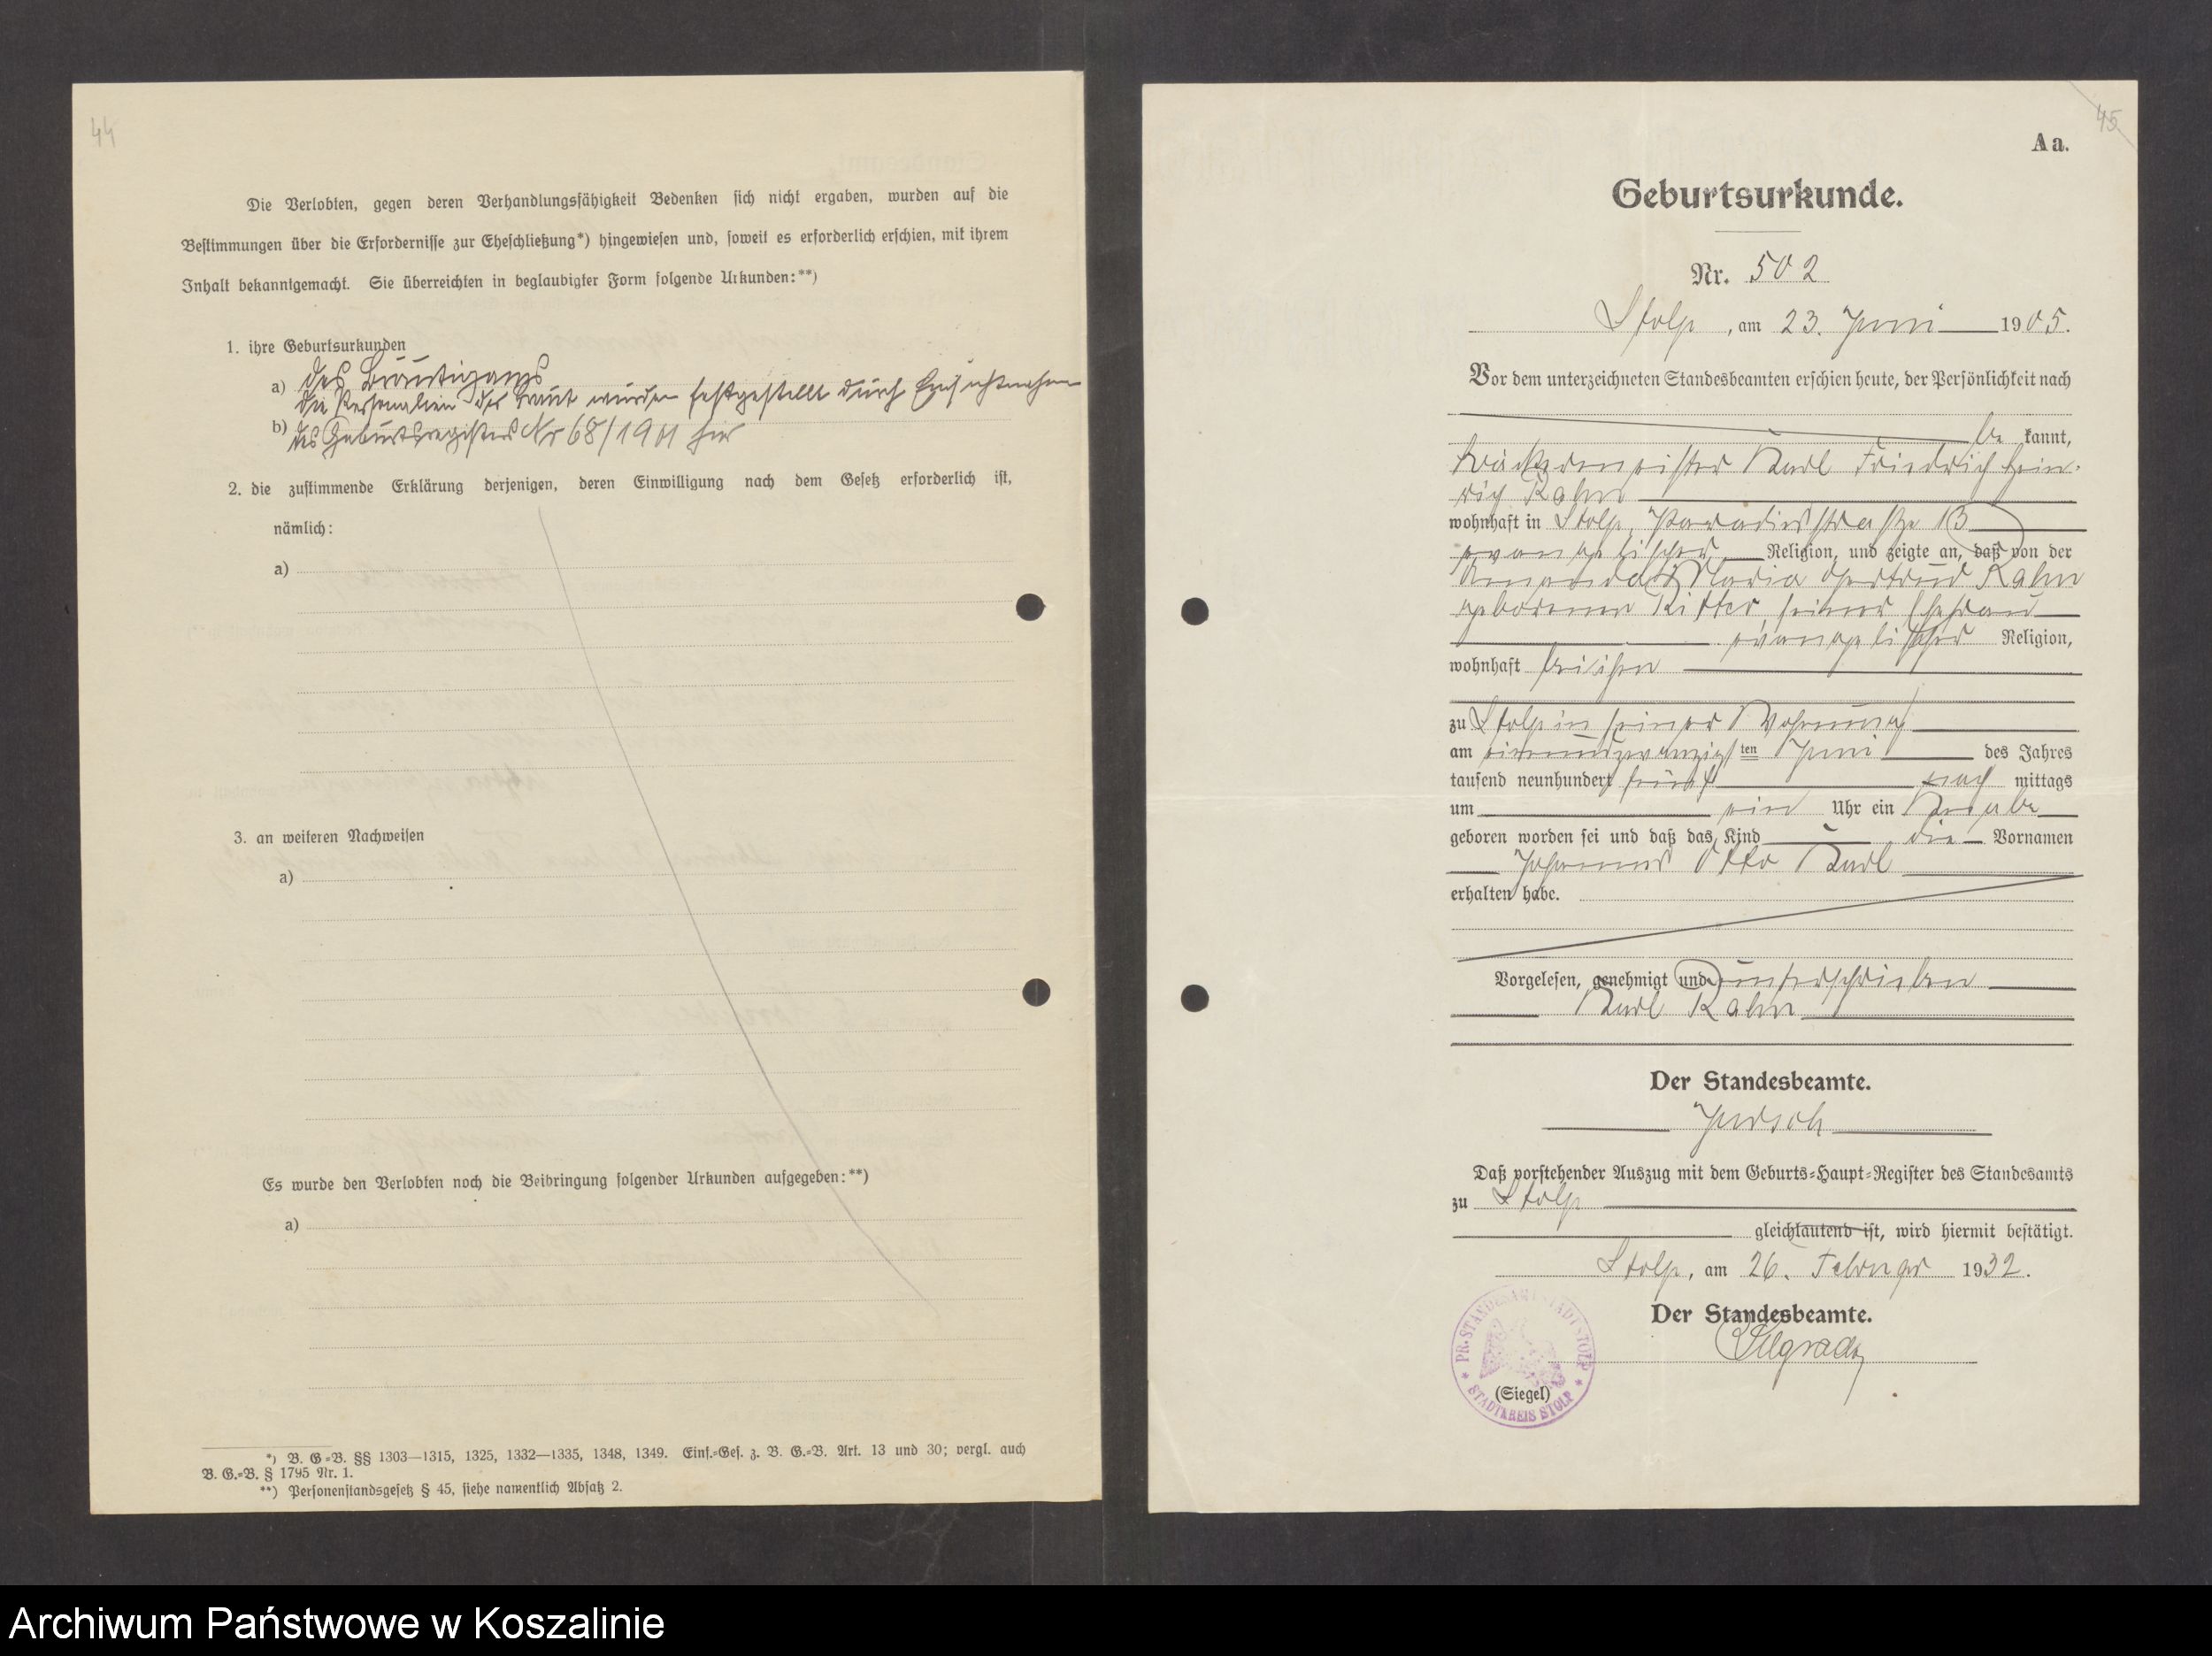 44
Die Verlobten, gegen deren Verhandlungsfähigkeit Bedenken sich nicht ergaben, wurden auf die
Bestimmungen über die Erfordernisse zur Eheschließung*) hingewiesen und, soweit es erforderlich erschien, mit ihrem
Inhalt bekanntgemacht. Sie überreichten in beglaubigter Form folgende Urkunden:**)
1. ihre Geburtsurkunden
a) des Bräutigams
die Personalien der Braut wurden festgestellt durch Einsichtnahme
b) des Geburtsregisters Nr 68/1901 hier
2. die zustimmende Erklärung derjenigen, deren Einwilligung nach dem Gesetz erforderlich ist,
nämlich:
a)
3. an weiteren Nachweisen
a)
Es wurde den Verlobten noch die Beibringung folgender Urkunden aufgegeben:**)
a)
*) B. G.=B. §§ 1303—1315, 1325, 1332—1335, 1348, 1349. Einf.=Ges. z. B. G.=B. Art. 13 und 30; vergl. auch
B. G.=B. § 1795 Nr. 1.
**) Personenstandsgesetz § 45, siehe namentlich Absatz 2.
45
Aa.
Geburtsurkunde.
Nr. 502
Stolp, am 23. Juni 1905.
Vor dem unterzeichneten Standesbeamten erschien heute, der Persönlichkeit nach
be kannt,
Bäckermeister Karl Friedrich Hein-
rich Rahn
wohnhaft in Stolp, Paradiesstraße 13
evangelischer Religion, und zeigte an, daß von der
Maria Gertrud Rahn
geborenen Ritter, seiner Ehefrau
evangelischer Religion,
wohnhaft bei ihm
zu Stolp in seiner Wohnung
am einundzwanzigsten Juni des Jahres
tausend neunhundert fünf nach mittags
um ein Uhr ein Knabe
geboren worden sei und daß das Kind die Vornamen
Johannes Otto Karl
erhalten habe.
Vorgelesen, genehmigt und unterschrieben
Karl Rahn
Der Standesbeamte.
Daß vorstehender Auszug mit dem Geburts=Haupt=Register des Standesamts
zu Stolp
gleichlautend ist, wird hiermit bestätigt.
Stolp, am 26. Februar 1932.
Der Standesbeamte.
PR. STANDESAMT STADT STOLP * STADTKREIS STOLP *
(Siegel)
Archiwum Państwowe w Koszalinie